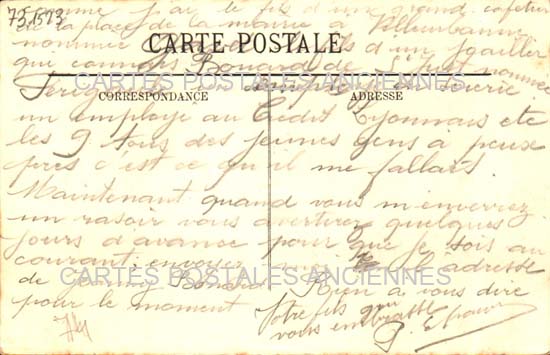 731513
comme j'ai le fils d'un grand cafetier
de la place de la mairie à Villeurbanne
nommée d'un
CARTE POSTALE
que connais Bonard de St Just nommée
CARTES POSTALES ANCIENNES
CORRESPONDANCE
ADRESSE
un employé au Crédit Lyonnais etc
les 9 tous des jeunes gens a peux
près c'est ce qu'il me fallait
Maintenant quand vous m'enverrez
un rasoir vous avertirez quelques
jours d'avance pour que je sois au
courant envoyer à l'adresse
CARTES POSTALES ANCIENNES
de Bonard Rien a vous dire
pour le moment
Votre fils qui
vous embrasse